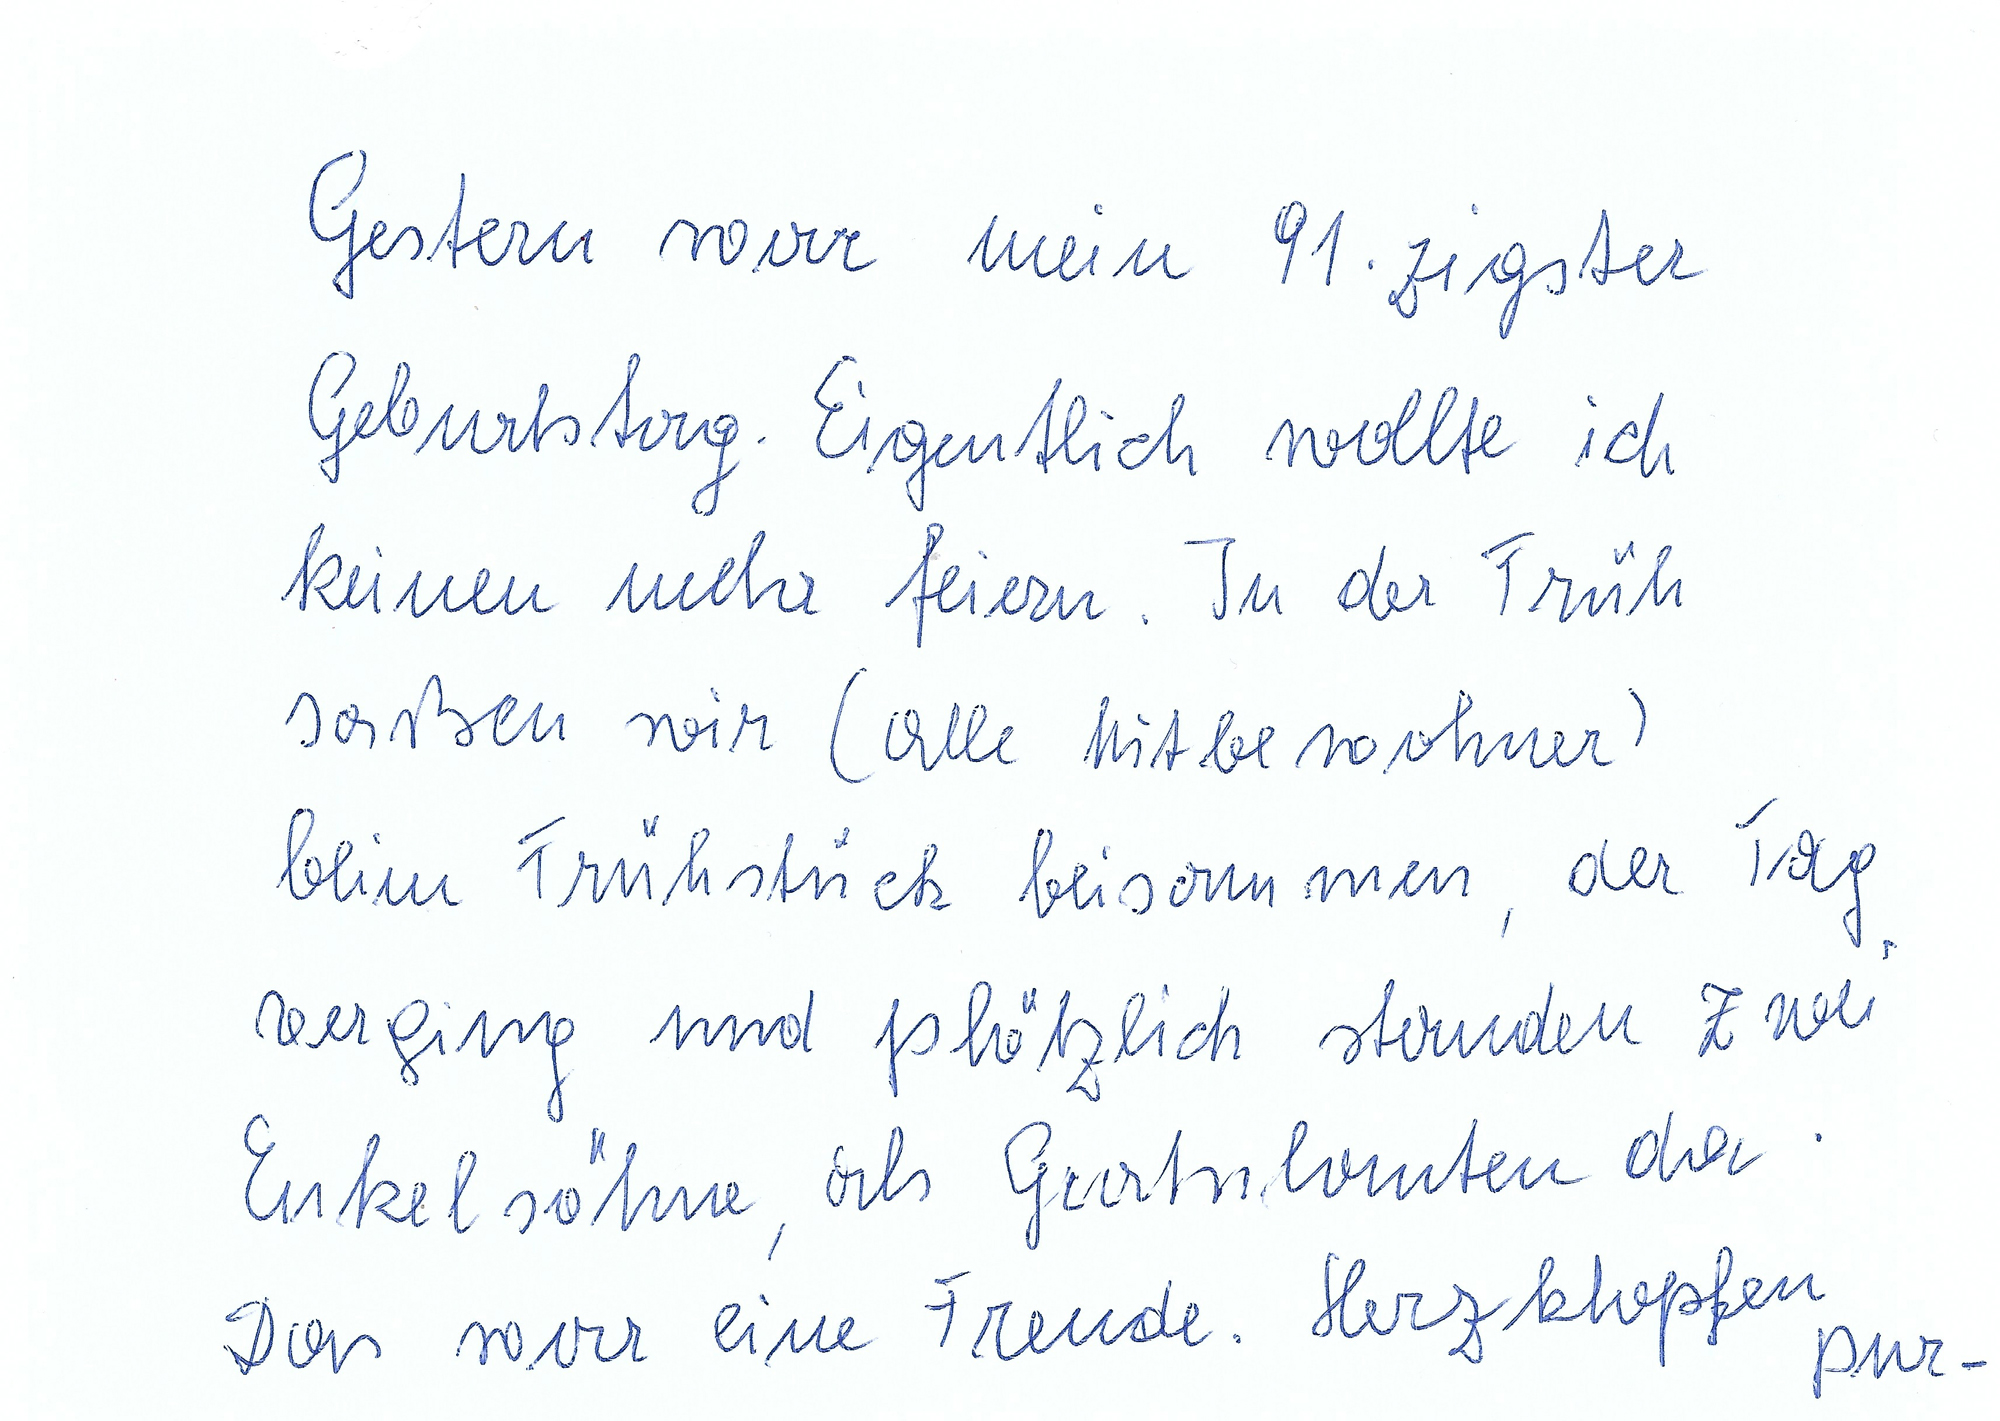 Gestern war mein 91.zigster
Geburtstag. Eigentlich wollte ich
keinen mehr feiern. In der Früh
saßen wir (alle Mitbewohner)
beim Frühstück beisammen, der Tag
verging und plötzlich standen zwei
Enkelsöhne, als Gratulanten da.
Das war eine Freude. Herzklopfen
pur-